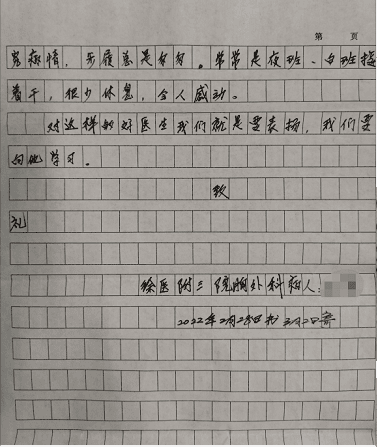 第 页
病情，步履总是匆匆。常常是夜班、白班接
着干，很少休息，令人感动。
对这样的好医生我们就是要表扬，我们要
向他学习。
致
礼
徐医附三院胸外科病人：
2022年2月28日